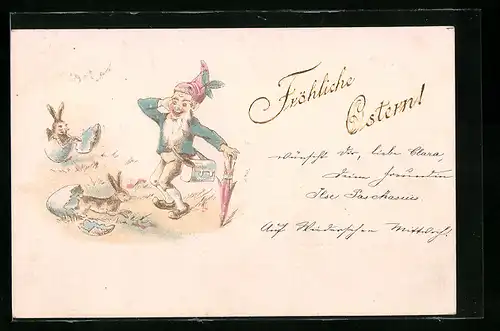 Fröhliche
Ostern!
wünscht Dir, liebe Clara,
Deine Freundin
Ilse Paschasius
Auf Wiedersehen Mittwoch!